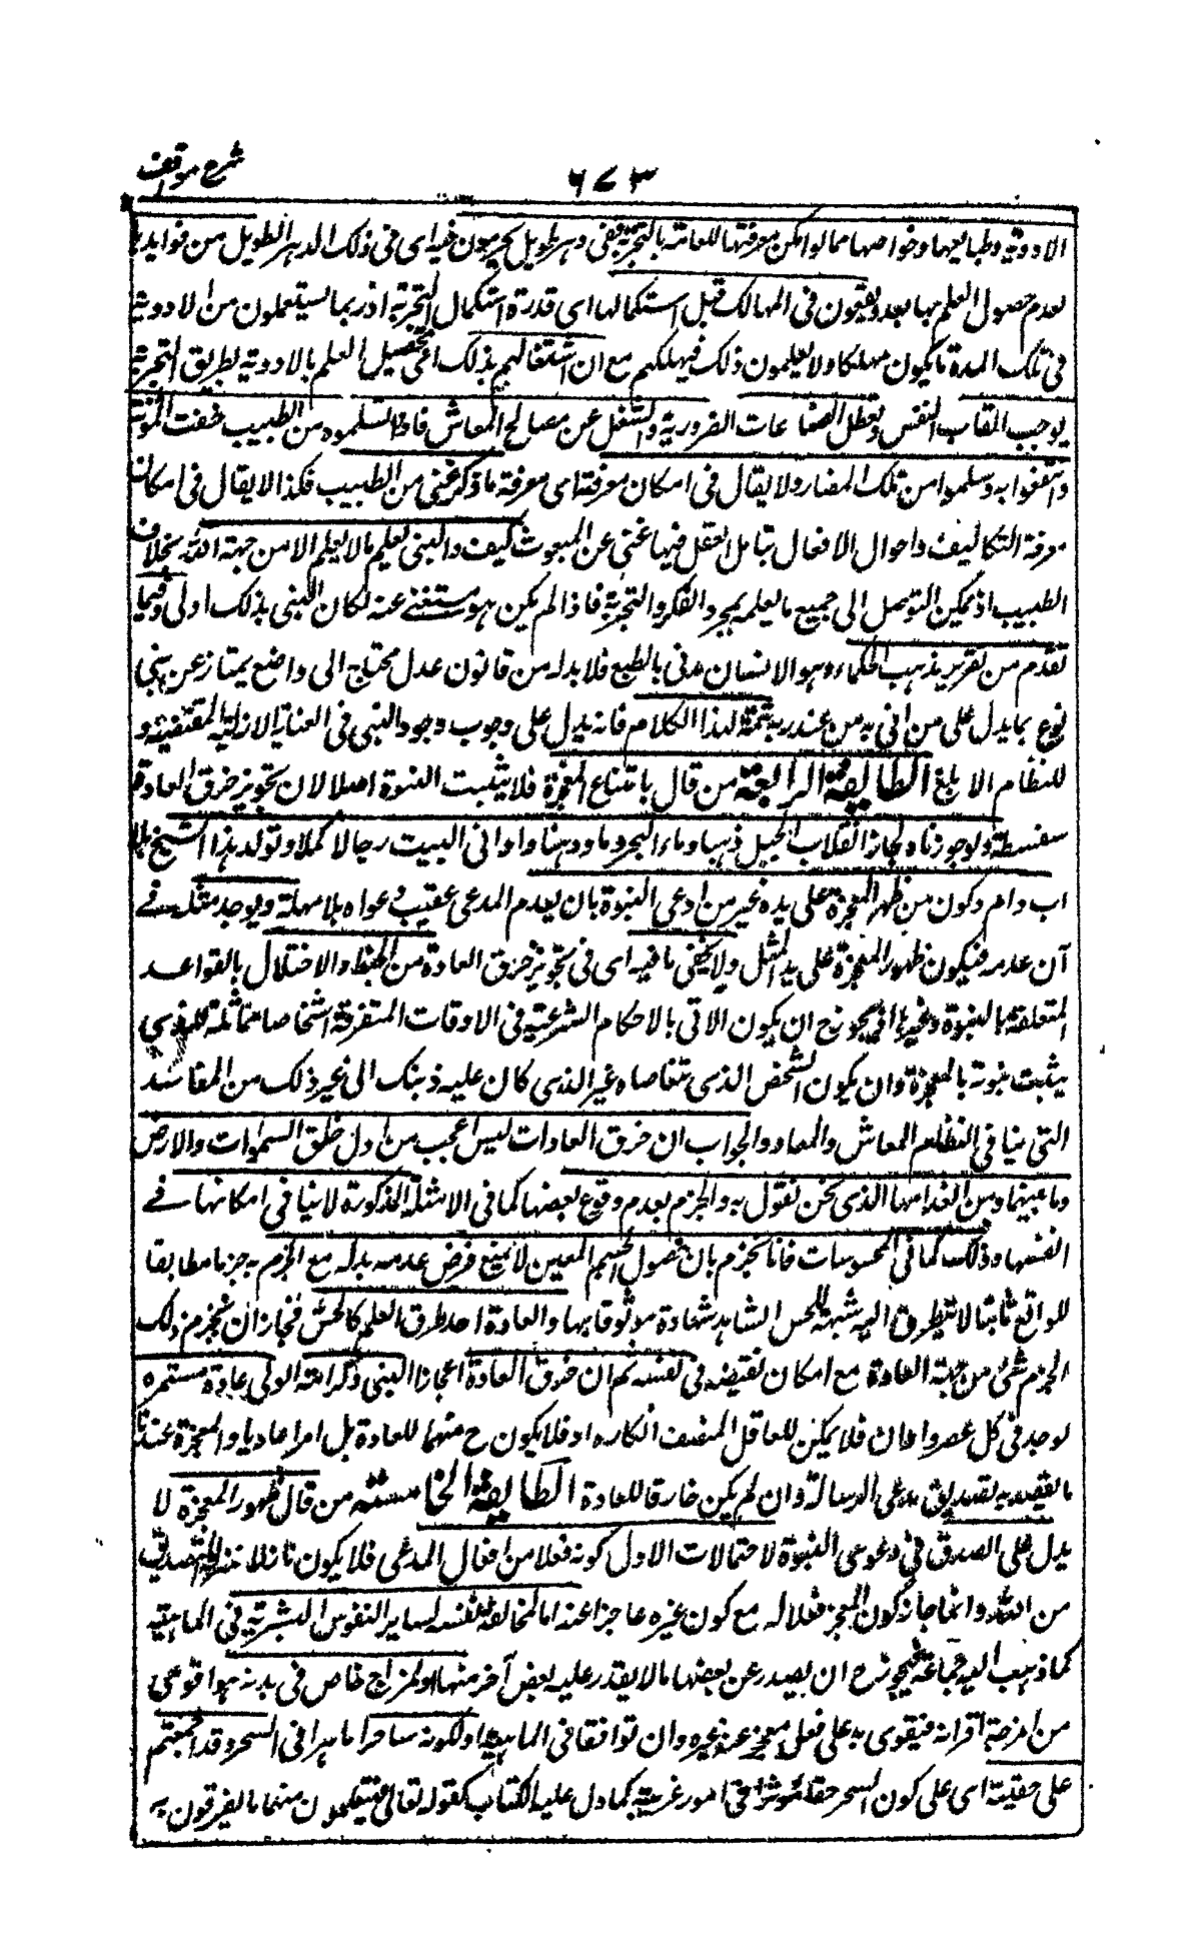 شرح مواقف
٦٧٣
الادوية وطبايعها وخواصها مما لو امكن معرفتها للعامة بالتجربة ففى دهر طويل يحرمون فيه اى فى ذلك الدهر الطويل من فوايدها
لعدم حصول العلم بها بعد ويقعون فى المهالك قبل استكمالها اى قدرة استكمال التجربة اذ ربما يستعملون من الادوية
فى تلك المدة ما يكون مهلكا ولا يعلمون ذلك فيهلكهم مع ان اشتغالهم بذلك اى تحصيل العلم بالادوية بطريق التجربة
يوجب اتعاب النفس وتعطل الصناعات الضرورية والشغل عن مصالح المعاش فاذا تسلموه من الطبيب خفت المؤنة
وانتفعوا به وسلموا من تلك المضار ولا يقال فى امكان معرفته اى معرفة ما ذكر غنى من الطبيب فكذا لا يقال فى امكان
معرفة التكاليف واحوال الافعال بتامل العقل فيها غنى عن المبعوث كيف والنبى يعلم ما لا يعلم الا من جهة الله بخلاف
الطبيب اذ يمكن التوصل الى جميع ما يعلمه بمجرد الفكر والتجربة فاذا لم يكن هو مستغنى عنه لكان النبى بذلك اولى وفيما
تقدم من تقرير مذهب الحكماء وهو الانسان مدنى بالطبع فلا بد له من قانون عدل محتاج الى واضع يمتاز عن بنى
نوع بما يدل على من اتى به من عند ربه تتمة لهذا الكلام فانه يدل على وجوب وجود النبى فى العناية الازلية المقتضية و
للنظام الابلغ الطايفة الرابعة من قال بامتناع المعجزة فلا يثبت النبوة اصلا لان تجويز خرق العادة
سفسطة ولو جوزناه لجاز انقلاب الجبل ذهبا وماء البحر دما ودهنا واوانى البيت رجالا كملا وتولد هذا الشيخ بلا
اب وام وكون من ظهر المعجزة على يده غير من ادعى النبوة بان يعدم المدعى عقيب دعواه بلا مهلة ويوجد مثله فى
آن عدمه فيكون ظهور المعجزة على يد المثل ولا يخفى ما فيه اى فى تجويز خرق العادة من الخبط والاختلال بالقواعد
المتعلقة بالنبوة وغيرها اذ يجوز ح ان يكون الاتى بالاحكام الشرعية فى الاوقات المتفرقة اشخاصا مماثلة للذى
يثبت نبوته بالمعجزة وان يكون الشخص الذى تتقاضاه غير الذى كان عليه دينك الى غير ذلك من المفاسد
التى ينافى النظام المعاش والمعاد والجواب ان خرق العادات ليس اعجب من اول خلق السموات والارض
وما بينهما ومن انعدامها الذى نحن نقول به والجزم بعدم وقوع بعضها كما فى الامثلة المذكورة لا ينافى امكانها فى
انفسها وذلك كما فى المحسوسات فانا نجزم بان حصول الجسم المعين لا يمنع فرض عدمه بدله مع الجزم به جزما مطابقا
للواقع ثابتا لا يتطرق اليه شبهة للحس الشاهد شهادة موثوقا بها والعادة احد طرق العلم كالحس فجاز ان نجزم بذلك
الجزم شئ من جهة العادة مع امكان نقيضه فى نفسه ثم ان خرق العادة اعجازا للنبى وكرامة الولى عادة مستمرة
يوجد فى كل عصر واوان فلا يمكن للعاقل المنصف انكاره او فلا يكون ح منهما للعادة بل امرا عاديا والمعجزة عندنا
ما يقصد به تصديق مدعى الرسالة وان لم يكن خارقا للعادة الطايفة الخامسة من قال ظهور المعجزة لا
يدل على الصدق فى دعوى النبوة لاحتمالات الاول كونه فعلا من افعال المدعى فلا يكون نازلا منزلة التصديق
من الله وانما جاز كون المعجز فعلا له مع كون غيره عاجزا عنه اما لمخالفة نفسه لساير النفوس البشرية فى الماهية
كما ذهب اليه جماعة فيجوز ح ان يصدر عن بعضها ما لا يقدر عليه بعض آخر منها او لمزاج خاص فى بدنه هو اقوى
من امزجة اقرانه فيقوى به على فعل يعجز عنه غيره وان توافقا فى الماهية او لكونه ساحرا ماهرا فى السحر وقد اجمعتم
على حقيته اى على كون السحر حقا مؤثرا فى امور غريبة كما دل عليه الكتاب كقوله تعالى فيتعلمون منهما ما يفرقون به